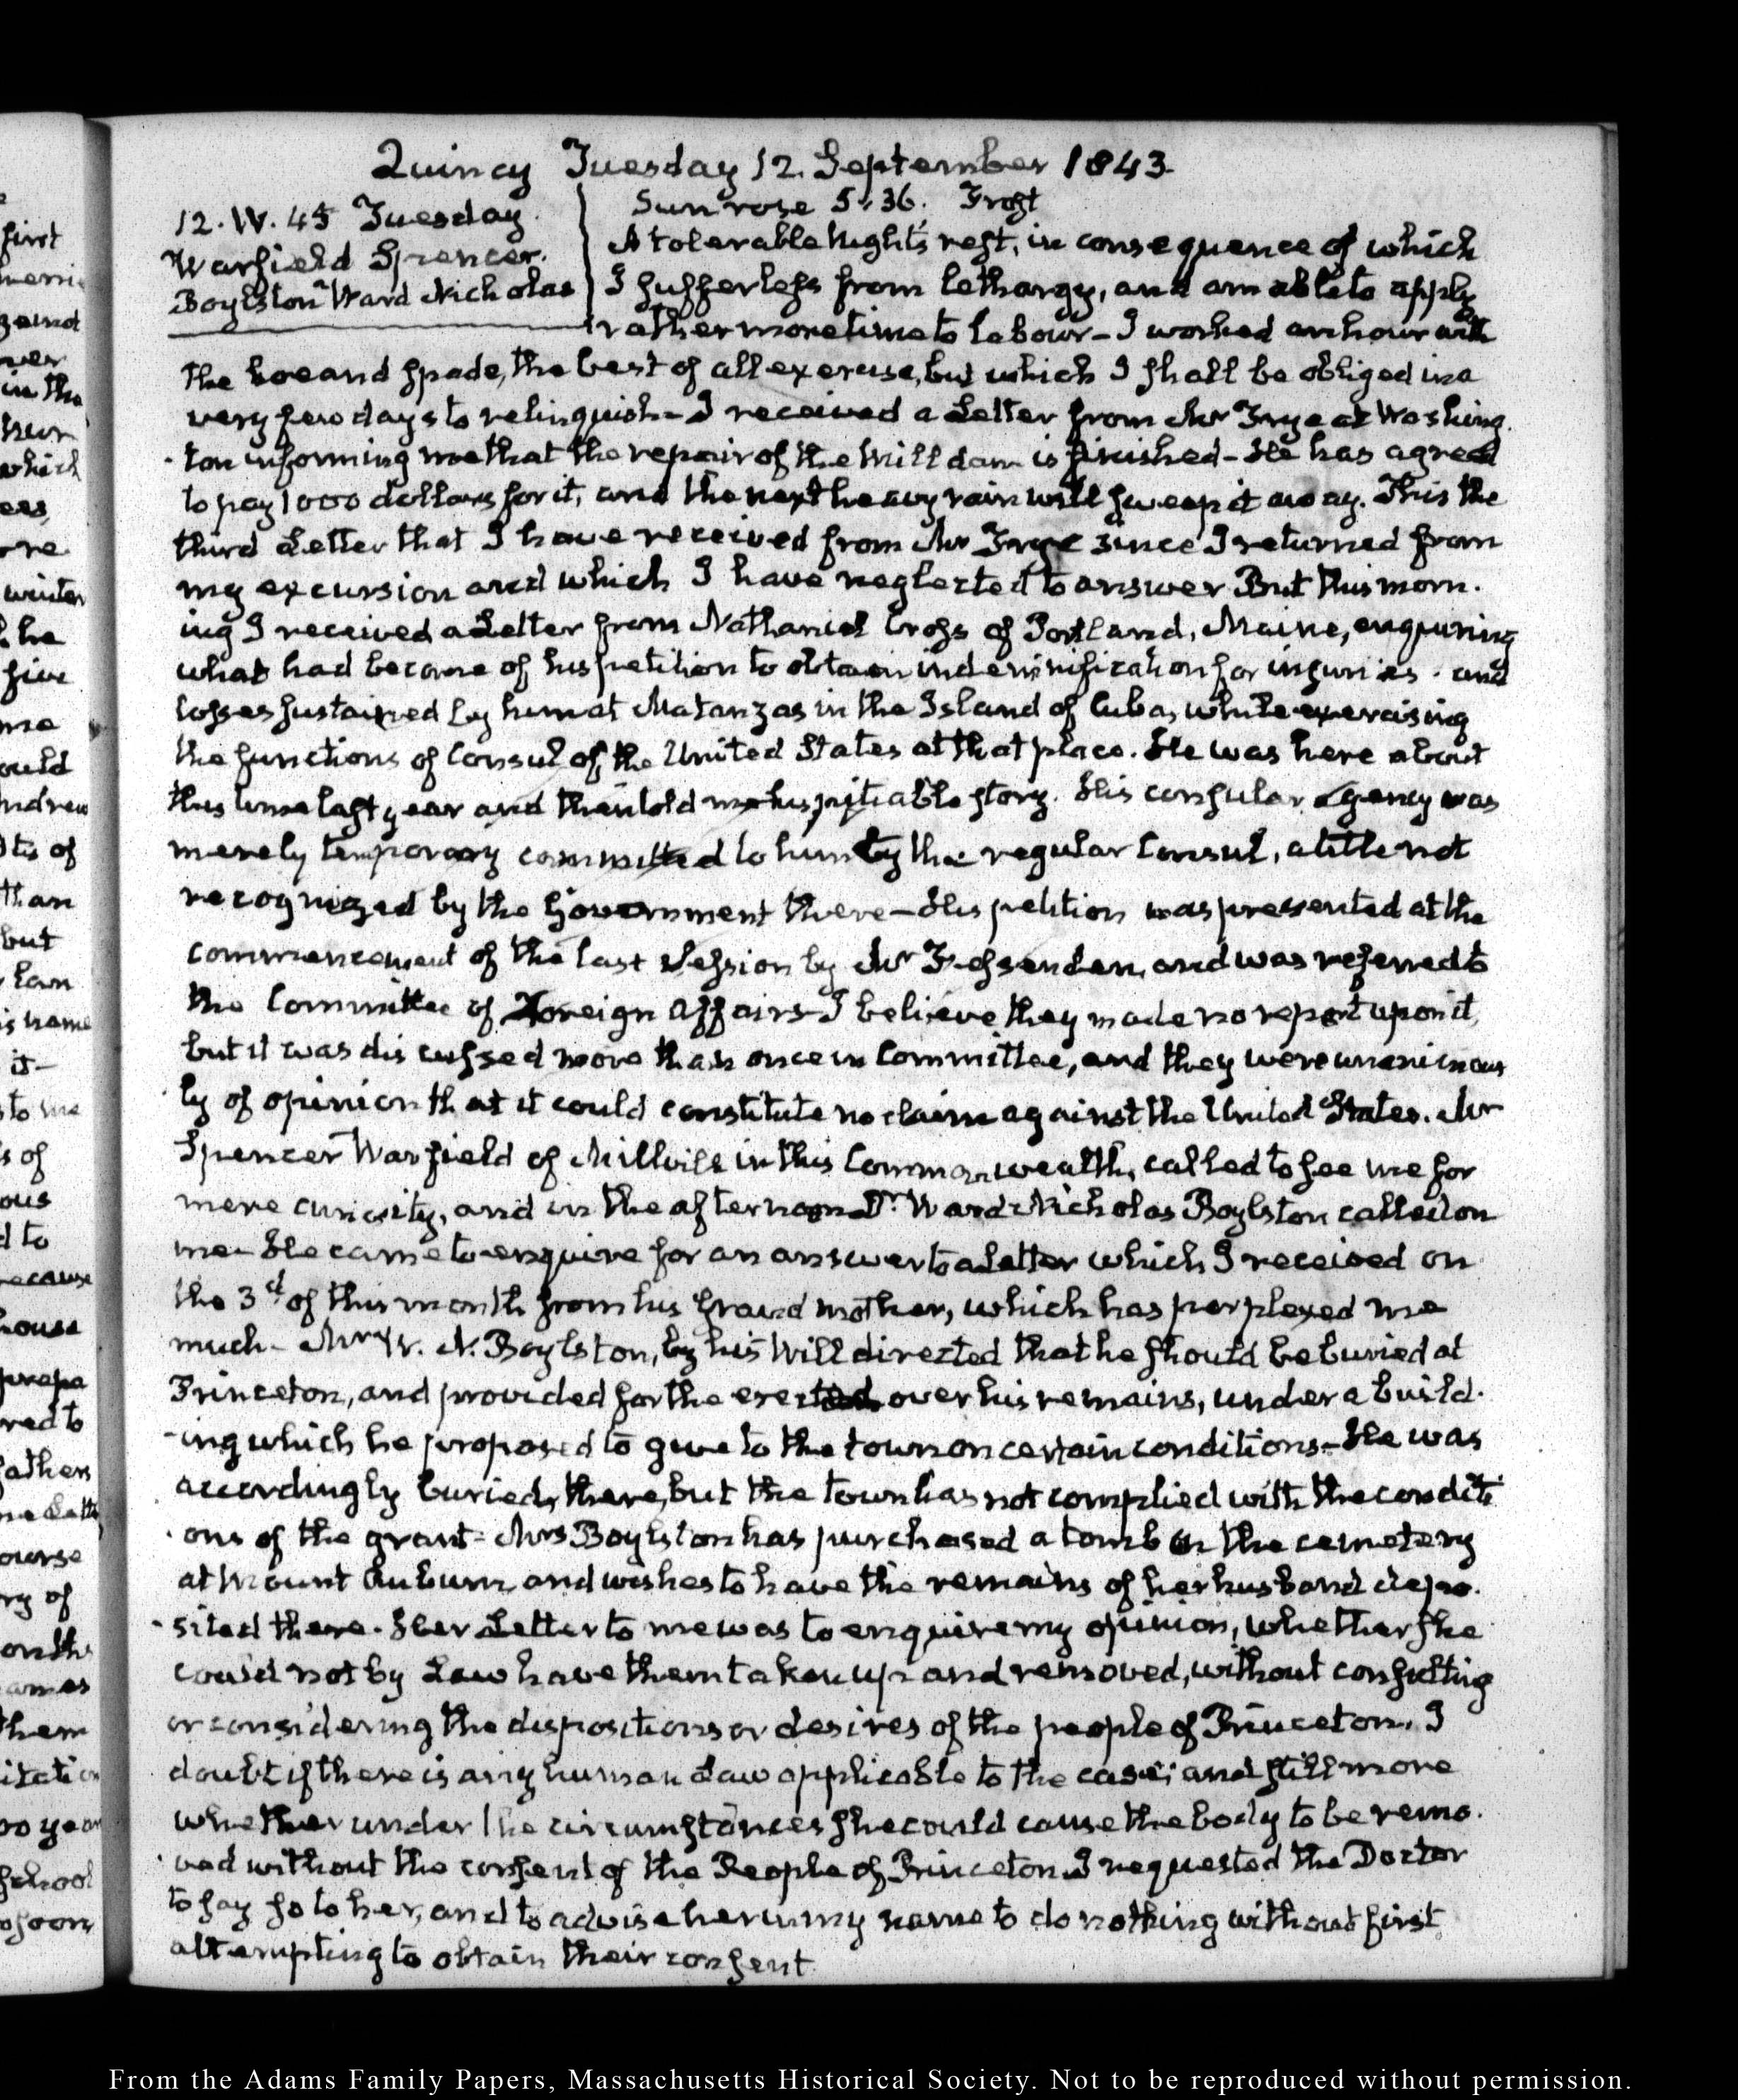 Quincy Tuesday 12. September 1843.
12. IV. 45 Tuesday.
Warfield Spencer.
Boylston Ward Nicholas
Sun rose 5.36. Frost
A tolerable Night's rest, in consequence of which
I suffer less from lethargy, and am able to apply
rather more time to labour – I worked an hour with
the hoe and spade, the best of all exercise, but which I shall be obliged in a
very few days to relinquish – I received a Letter from Mr Frye at Washing-
ton informing me that the repair of the Mill dam is finished – He has agreed
to pay 1000 dollars for it, and the next heavy rain will sweep it away. This the
third Letter that I have received from Mr Frye since I returned from
my excursion and which I have neglected to answer But this morn-
ing I received a Letter from Nathaniel Cross of Portland, Maine, enquiring
what had become of his petition to obtain indemnification for injuries and
losses sustained by him at Matanzas in the Island of Cuba, while exercising
the functions of Consul of the United States at that place. He was here about
this time last year and then told me his pitiable story. His consular Agency was
merely temporary committed to him by the regular Consul, a title not
recognized by the Government there – His petition was presented at the
commencement of the last Session by Mr Fessenden, and was referred to
the Committee of Foreign Affairs – I believe they made no report upon it,
but it was discussed more than once in Committee, and they were unanimous
ly of opinion that it could constitute no claim against the United States. Mr
Spencer Warfield of Millville in this Commonwealth, called to see me for
mere curiosity, and in the afternoon Dr. Ward Nicholas Boylston called on
me – He came to enquire for an answer to a Letter which I received on
the 3d of this month from his Grand mother, which has perplexed me
much – Mr W. N. Boylston, by his Will directed that he should be buried at
Princeton, and provided for the erected over his remains, under a build-
-ing which he proposed to give to the town on certain conditions – He was
accordingly buried there, but the town has not complied with the conditi
ons of the grant – Mrs Boylston has purchased a tomb in the cemetery
at Mount Auburn and wishes to have the remains of her husband depo-
sited there. Her Letter to me was to enquire my opinion, whether she
could not by Law have them taken up and removed, without consulting
or considering the dispositions or desires of the people of Princeton. I
doubt if there is any human Law applicable to the case; and still more
whether under the circumstances she could cause the body to be remo-
ved without the consent of the People of Princeton. I requested the Doctor
to say so to her, and to advise her in my name to do nothing without first
attempting to obtain their consent
From the Adams Family Papers, Massachusetts Historical Society. Not to be reproduced without permission.